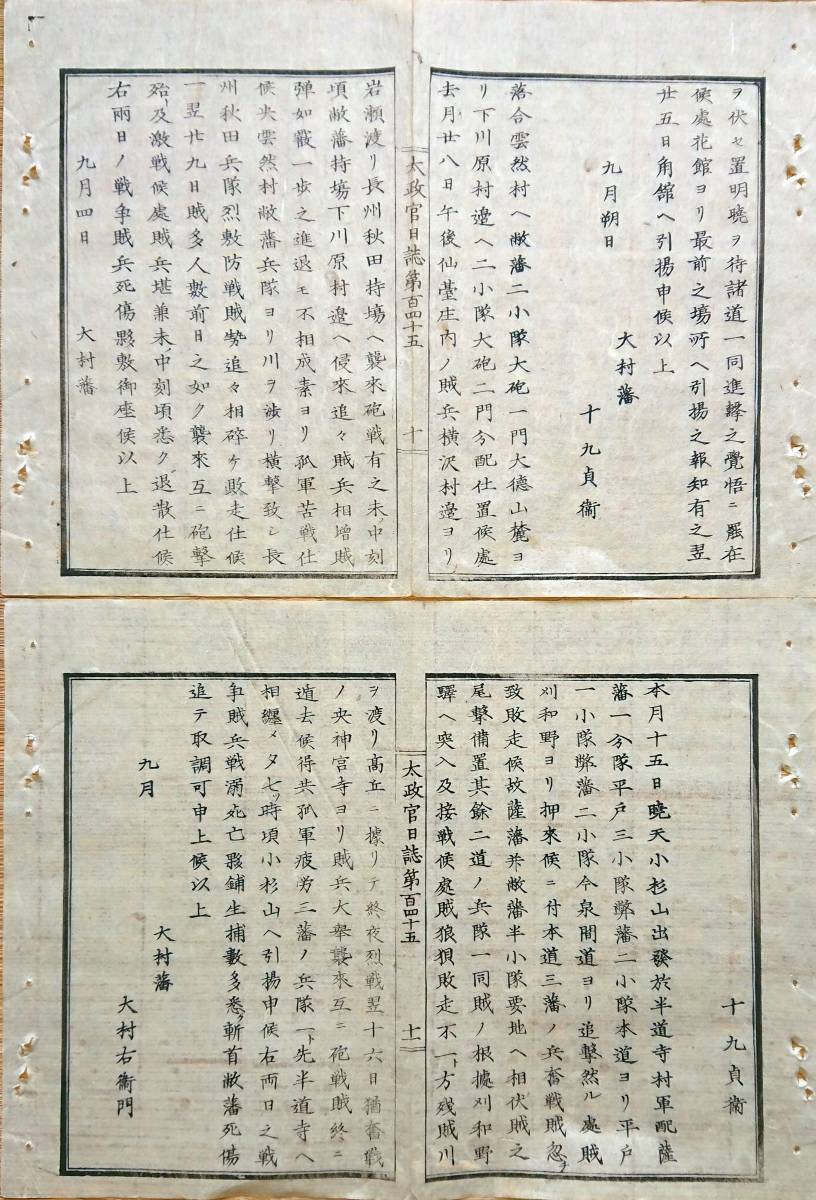 ヲ伏セ置明曉ヲ待諸道一同進撃之覺悟ニ罷在
候處花館ヨリ最前之場所ヘ引揚之報知有之翌
廿五日角館ヘ引揚申候以上
九月朔日
大村藩
十九貞衛
落合雲然村ヘ敝藩二小隊大砲一門大德山麓ヨ
リ下川原村邉ヘ二小隊大砲二門分配仕置候處
去月廿八日午後仙臺庄内ノ賊兵横沢村邉ヨリ
太政官日誌第百四十五
十
岩瀬渡リ長州秋田持場ヘ襲來砲戦有之未ノ中刻
頃敝藩持場下川原村邉ヘ侵來追々賊兵相增賊
弾如霰一歩之進退モ不相成素ヨリ孤軍苦戦仕
候央雲然村敝藩兵隊ヨリ川ヲ渉リ横撃致シ長
州秋田兵隊烈敷防戦賊勢追々相碎ケ敗走仕候
一翌廿九日賊多人數前日之如ク襲來互ニ砲撃
殆ト及激戦候處賊兵堪兼未ノ中刻頃悉ク退散仕候
右兩日ノ戦争賊兵死傷夥敷御座候以上
九月四日
大村藩
十九貞衛
本月十五日曉天小杉山出發於半道寺村軍配薩
藩一分隊平戸三小隊弊藩二小隊本道ヨリ平戸
一小隊弊藩二小隊今泉間道ヨリ追撃然ル處賊
刈和野ヨリ押來候ニ付本道三藩ノ兵奮戦賊忽チ
致敗走候故薩藩并敝藩半小隊要地ヘ相伏賊之
尾撃備置其餘二道ノ兵隊一同賊ノ根據刈和野
驛ヘ突入及接戦候處賊狼狽敗走不一ト方残賊川
太政官日誌第百四十五
十一
ヲ渡リ高丘ニ據リテ終夜烈戦翌十六日猶奮戦
ノ央神宮寺ヨリ賊兵大舉襲來互ニ砲戦賊終ニ
遁去候得共孤軍疲労三藩ノ兵隊一ト先半道寺ヘ
相纏メタ七ツ時頃小杉山ヘ引揚申候右両日之戦
争賊兵戦溺死亡夥鋪生捕數多悉ク斬首敝藩死傷
追テ取調可申上候以上
九月
大村藩
大村右衛門